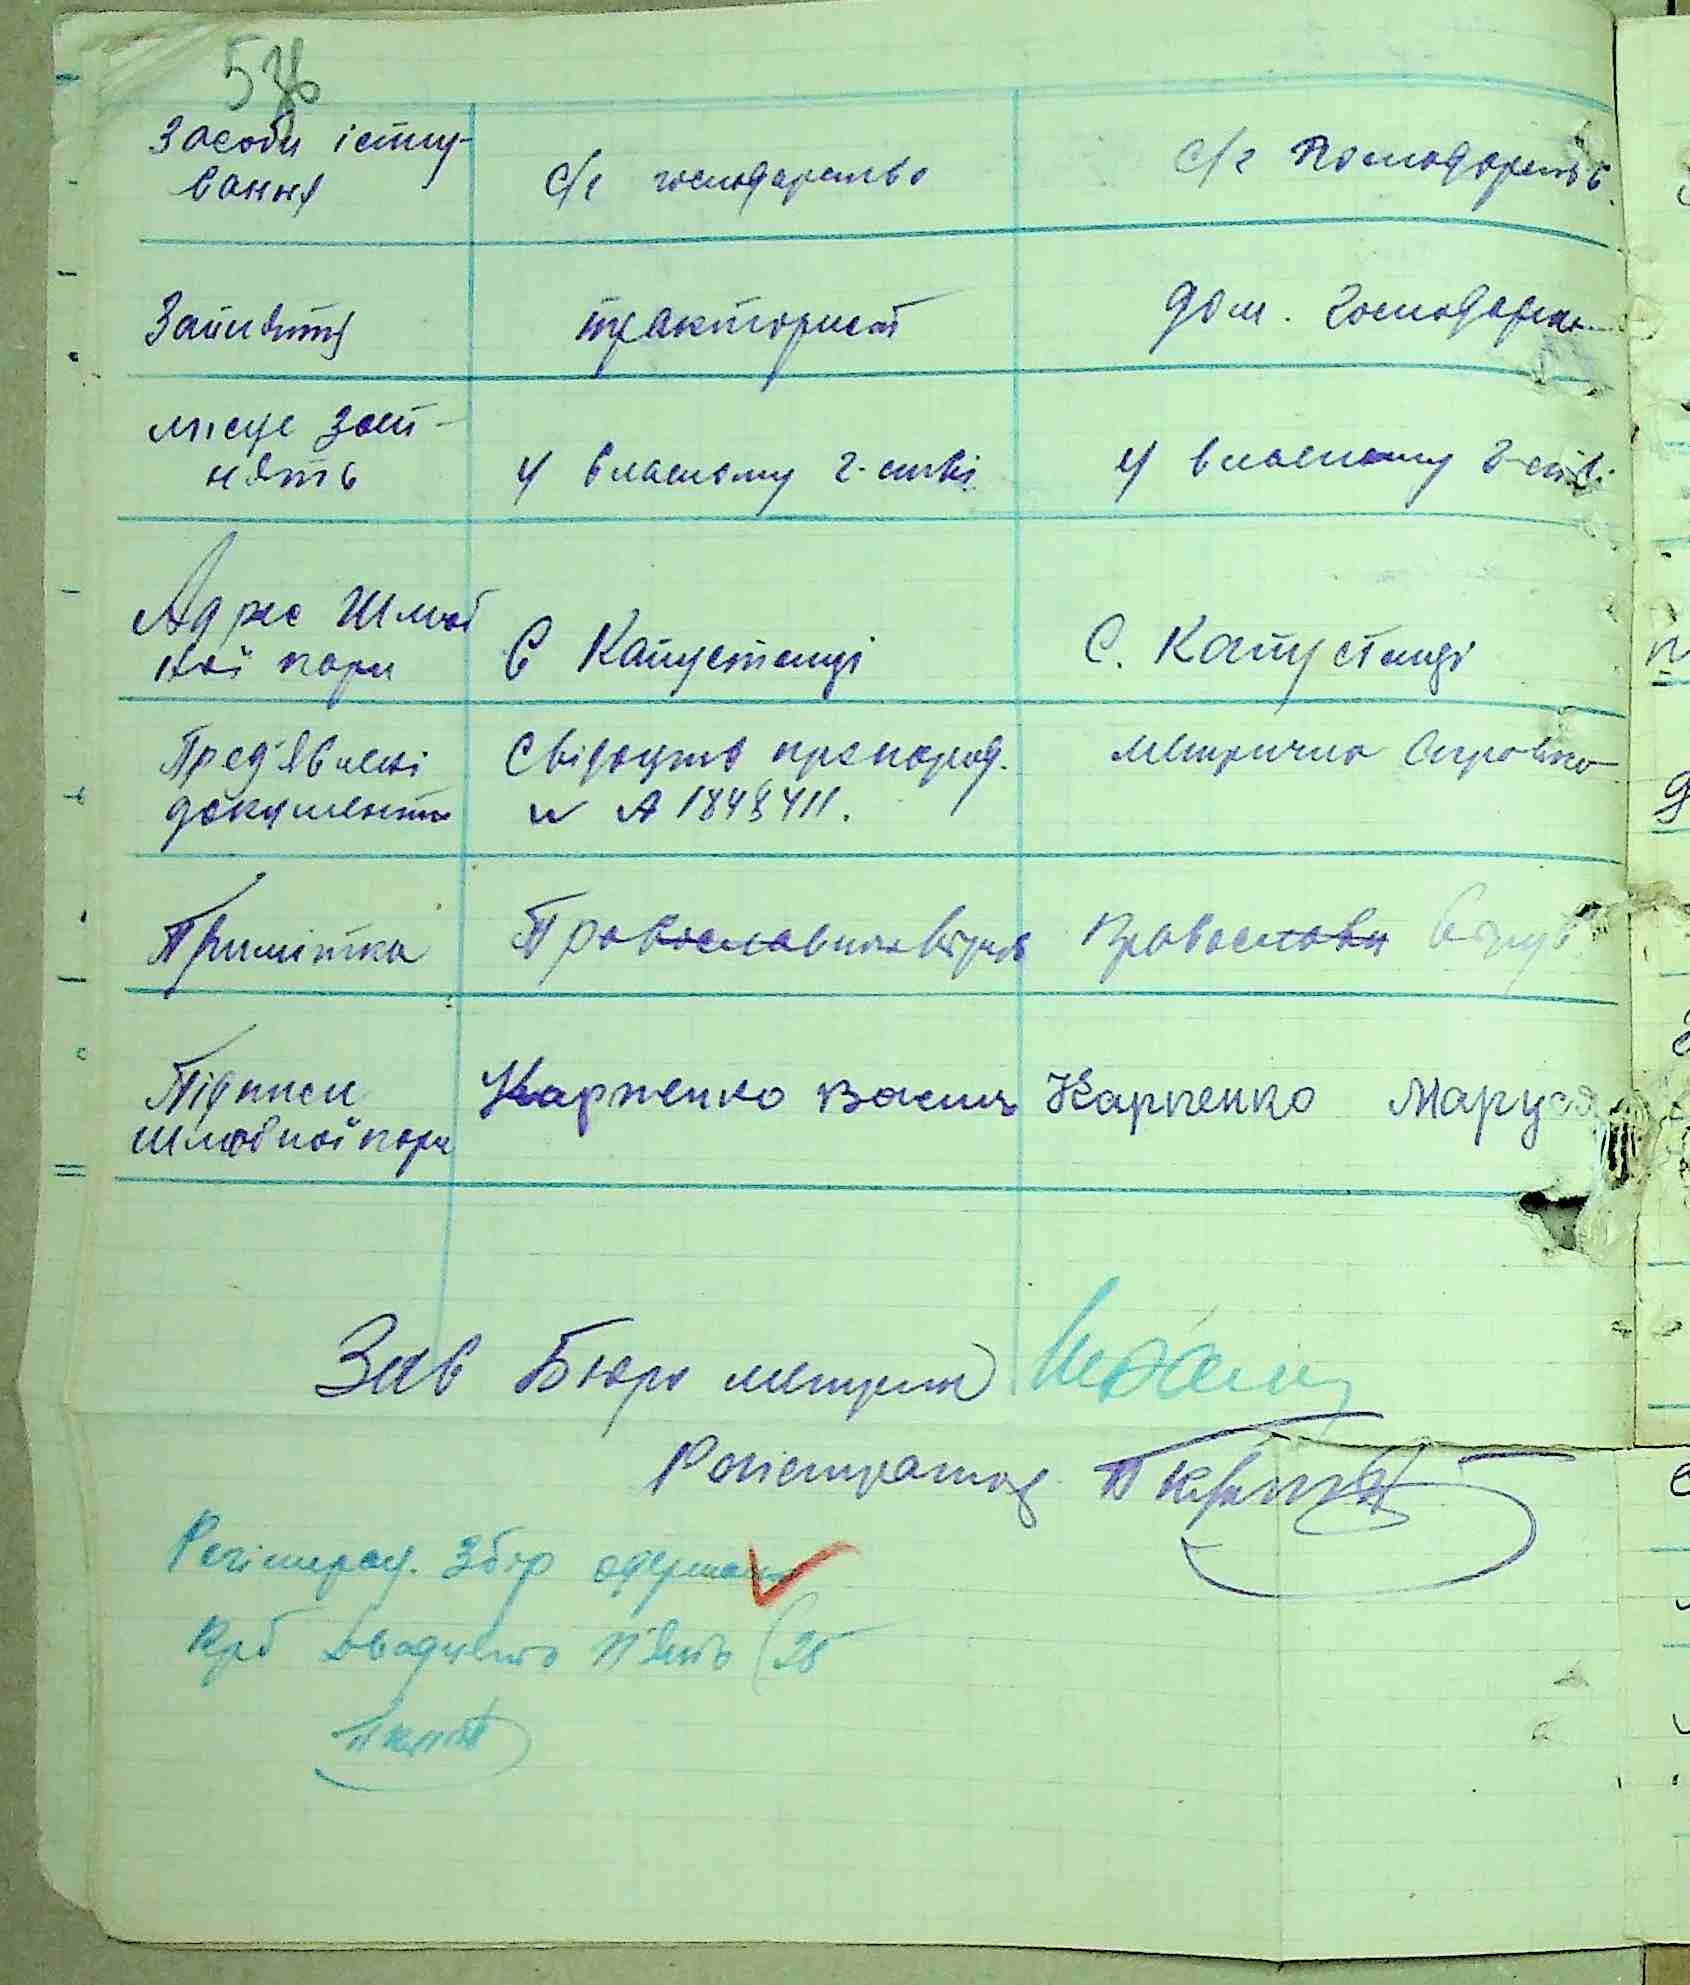 Засоби існу-
вання
с/г господарство
с/г господарств
Заняття
тракторист
дом. господарка
місце зай-
нять
у власному г-стві
у власному г-стві
Адрес Шлюб
ної пари
С Капустенці
С. Капустенці
Пред'явлені
документи
Свідоцтво про народ.
№ А 1848411.
метрична справка
Примітка
Православна віруюч
Православн віруюч
Підписи
шлюбної пари
Карпенко Василь
Карпенко Маруся
Зав Бюро метрик
Регістратор
Регістрац. Збір одержано
Крб Двадцять п'ять (25